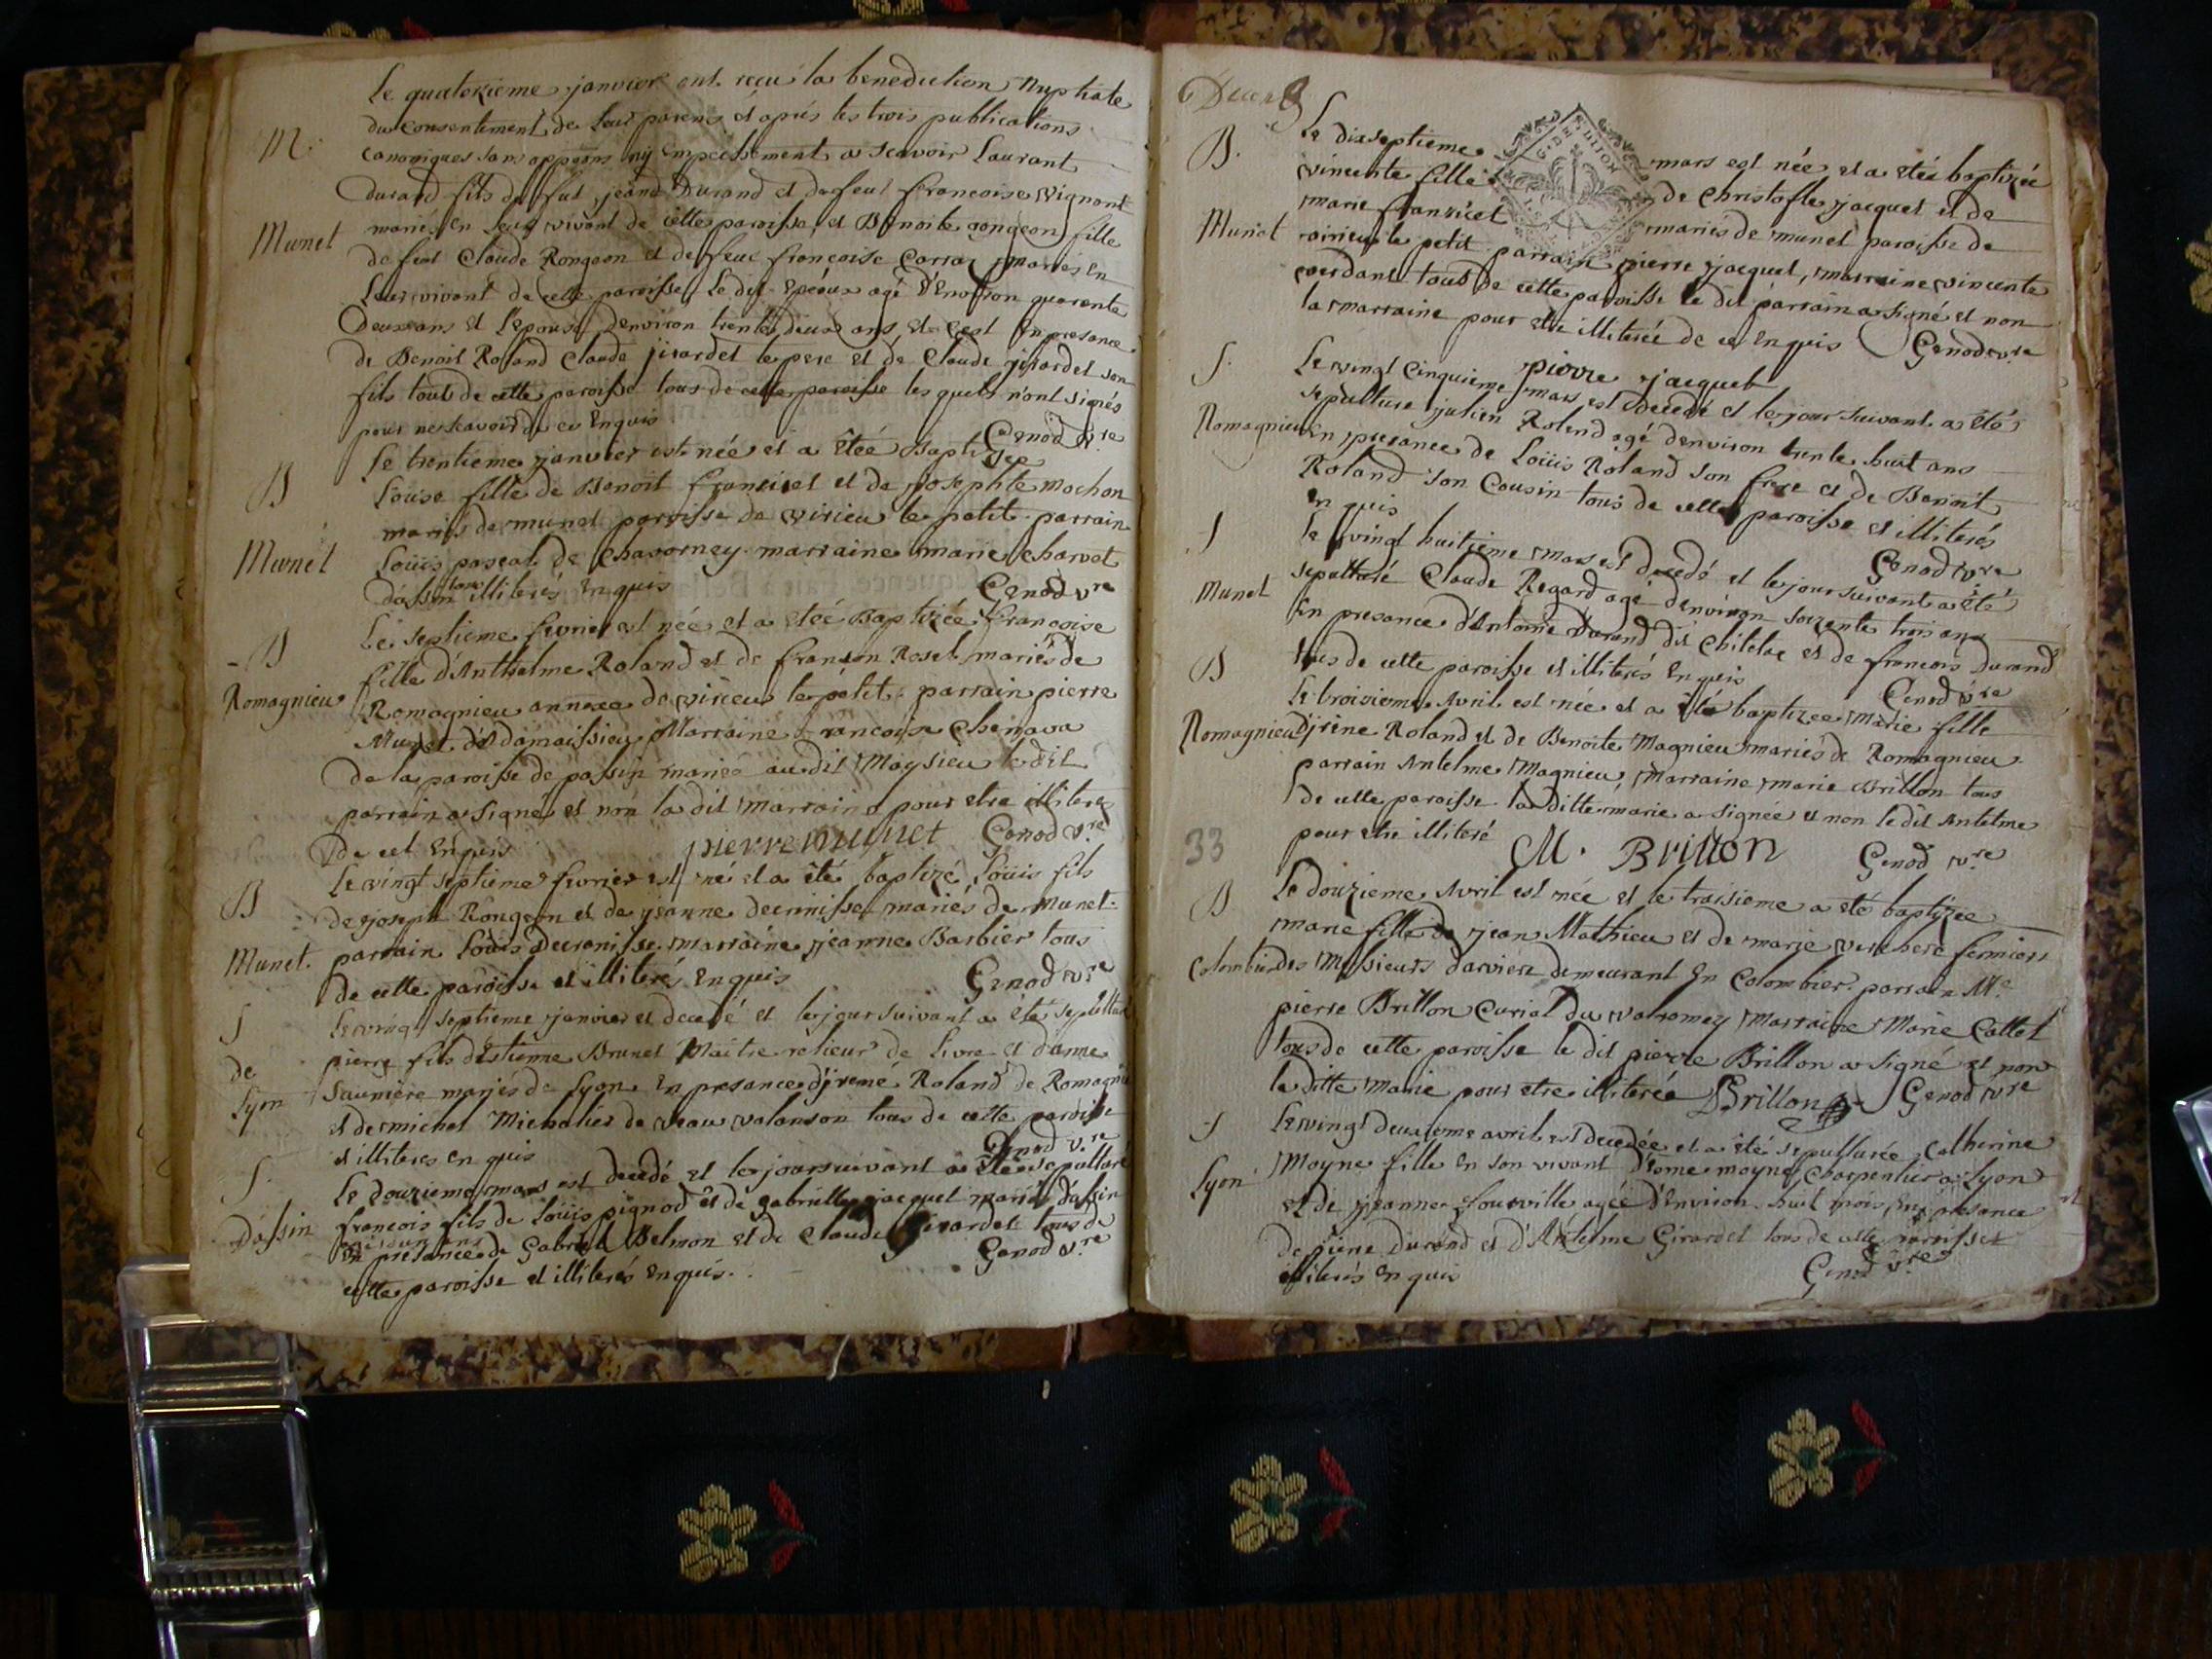 Le quatorzieme janvier ont reçu la benediction Nuptiale
du consentement de leur parens et après les trois publications
M.
canoniques sans oppõons ny empechement a scavoir Laurant
Durand fils de fut jean Durand et de feue francoise vignont
Munet
mariés en leur vivant de cette paroisse et Benoite fille
de feu Claude Rongeon et de feue francoise Carraz mariés en
leur vivant de cette paroisse, le dit Epoux agé d'Environ quarente
deux ans et l'epouse denviron trente deux ans, et c'est En presance
de Benoit Roland Claude jirardet le pere et de Claude girardet son
fils tous de cette paroisse tous de cette paroisse les quels n'ont signés
pour ne scavoir de ce Enquis
Genod vre
B
Le trentieme janvier est née et a êtée Baptizée
Louise fille de Benoit francicet et de josephte mochon
mariés de munet paroisse de virieu le petit. parrain
Munet
Loüis pascal de Chavorney marraine marie Charvet
dassin tous illiterés Enquis
Genod vre
B
Le septieme fevrier est née et a etée Baptizée francoise
fille d'Anthelme Roland et de Roset mariés de
Romagnieu
Romagnieu annexe de virieu le petit. parrain pierre
Munet Marraine francoise
de la paroisse de passin mariée audit le dit
parrain a signé et non la dit Marraine pour etre illiteré
de cet Enquis
pierre munet
Genod vre
B
Le vingt septieme fevrier est né et a êté baptizé Loüis fils
de joseph Rongeon et de jeanne decrenisse mariés de Munet.
Munet.
parrain Louis Decrenisse marraine jeanne Barbier tous
de cette paroisse et illiterés Enquis
Genod vre
S
Le vingt septieme janvier et decedé et le jour suivant a été sepulturé
de
pierre fils d'Estienne Brunet Maitre relieur de livre et d'anne
Lyon
Sauniere mariés de Lyon en presance d'jrené Roland de Romagnieu
et de michel Michalier de tous de cette paroisse
et illiteres en quis
Genod vre
S.
Le douzieme mars est decedé et le jour suivant a êté sepulturé
Dassin
francois fils de Loüis pignod et de gabrielle jacquet mariés d'assin
En presance de Gabriel Belmon et de Claude Girardet tous de
cette paroisse et illiterés enquis.
Genod vre
6 Deners
B.
Le dixseptieme mars est née et a etée baptizée
G. DE DIJON
vincente fille de Christofle jacquet et de
marie francicet mariés de munet paroisse de
Munet
virieu le petit parrain pierre jacquet, marraine vincente
verdant tous de cette paroisse le dit parrain a signé et non
la marraine pour etre illiterée de ce Enquis
Genod vre
pierre jacquet
S.
Le vingt cinquieme mars est decedé et le jour suivant a été
sepulture julien Rolend agé denviron trente huit ans
Romagnieu
En presance de Loüis Roland son frere et de Benoit
Roland son Cousin tous de cette paroisse et illiterés
enquis
Genod vre
S
Le vingt huitieme mars est decedé et le jour suivant a été
sepulturé Claude Regard agé denviron soixente trois ans
Munet
En presance d'Antoine Durand dit et de francois Durand
tous de cette paroisse et illiterés Enquis
Genod vre
B
Le troisieme Avril est née et a été baptizee Marie fille
Romagnieu
d'jréne Roland et de Benoite Magnieu mariés de Romagnieu
parrain Antelme Magnieu, Marraine marie Brillon tous
de cette paroisse la ditte marie a signée et non le dit Antelme
33
pour etre illiteré
M. Brillon
Genod vre
B
Le douzieme Avril est née et le traisieme a eté baptizée
marie fille de jean Mathieu et de marie verchere fermiers
Colombier
des Messieurs darviere demeurant En Colombier. parrain Me
pierre Brillon Curial du valromey Marraine Marie Callet
tous de cette paroisse le dit pierre Brillon a signé et non
la ditte marie pour etre illiterée
Brillon
Genod vre
S
Le vingt deuxieme avril est decedée et a été sepulturée Catherine
Lyon
Moyne fille en son vivant moyne charpentier a Lyon
et de jeanne agée d'Environ huit mois En presance
de Durand et d'Antelme Girardet tous de cette paroisse
illiterés Enquis
Genod vre